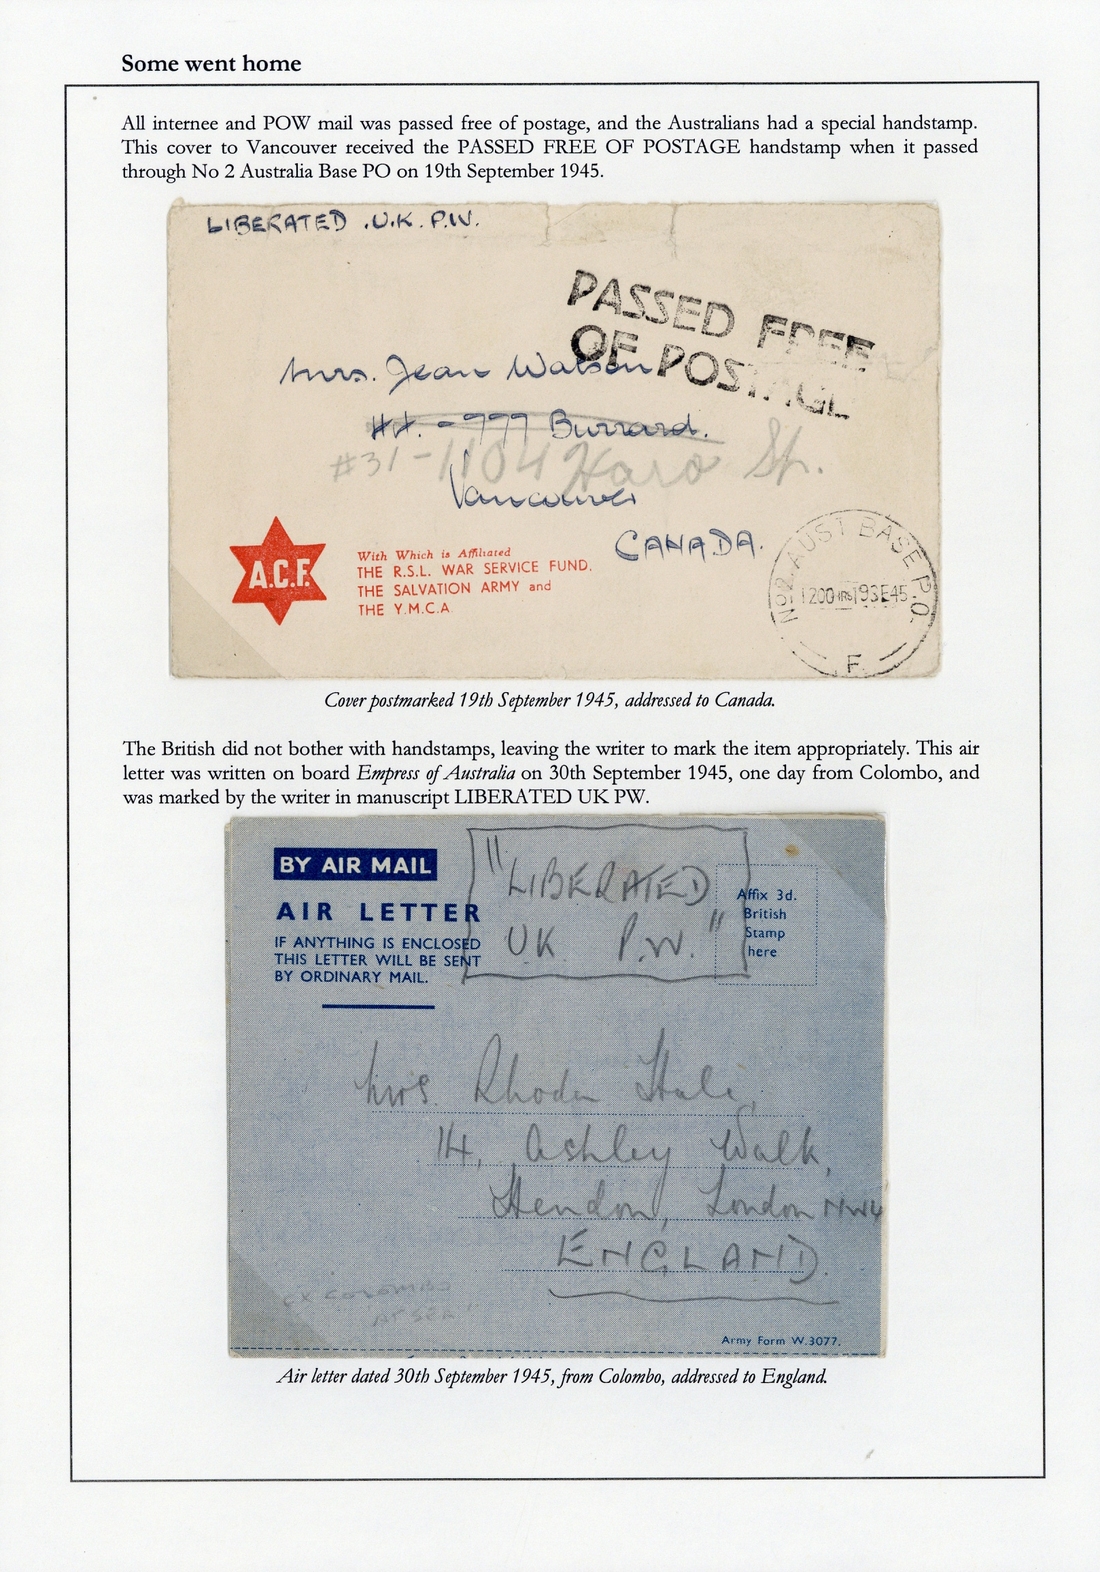 Some went home
All internee and POW mail was passed free of postage, and the Australians had a special handstamp.
This cover to Vancouver received the PASSED FREE OF POSTAGE handstamp when it passed
through No 2 Australia Base PO on 19th September 1945.
LIBERATED . U.K. P.W.
PASSED FREE
OF POSTAGE
Mrs. Jean Watson
- 777 Burrard.
#31 - 1104 Haro St.
Vancouver
CANADA.
A.C.F.
With Which is Affiliated
THE R.S.L. WAR SERVICE FUND.
THE SALVATION ARMY and
THE Y.M.C.A
No 2. AUST BASE P.O.
1200 HRS 19SE45
F.
Cover postmarked 19th September 1945, addressed to Canada.
The British did not bother with handstamps, leaving the writer to mark the item appropriately. This air
letter was written on board Empress of Australia on 30th September 1945, one day from Colombo, and
was marked by the writer in manuscript LIBERATED UK PW.
BY AIR MAIL
AIR LETTER
IF ANYTHING IS ENCLOSED
THIS LETTER WILL BE SENT
BY ORDINARY MAIL.
"LIBERATED
UK P.W."
Affix 3d.
British
Stamp
here
Mrs. Rhoda
14, Ashley Walk,
Hendon, London NW4
ENGLAND.
EX COLOMBO
"AT SEA"
Army Form W.3077.
Air letter dated 30th September 1945, from Colombo, addressed to England.